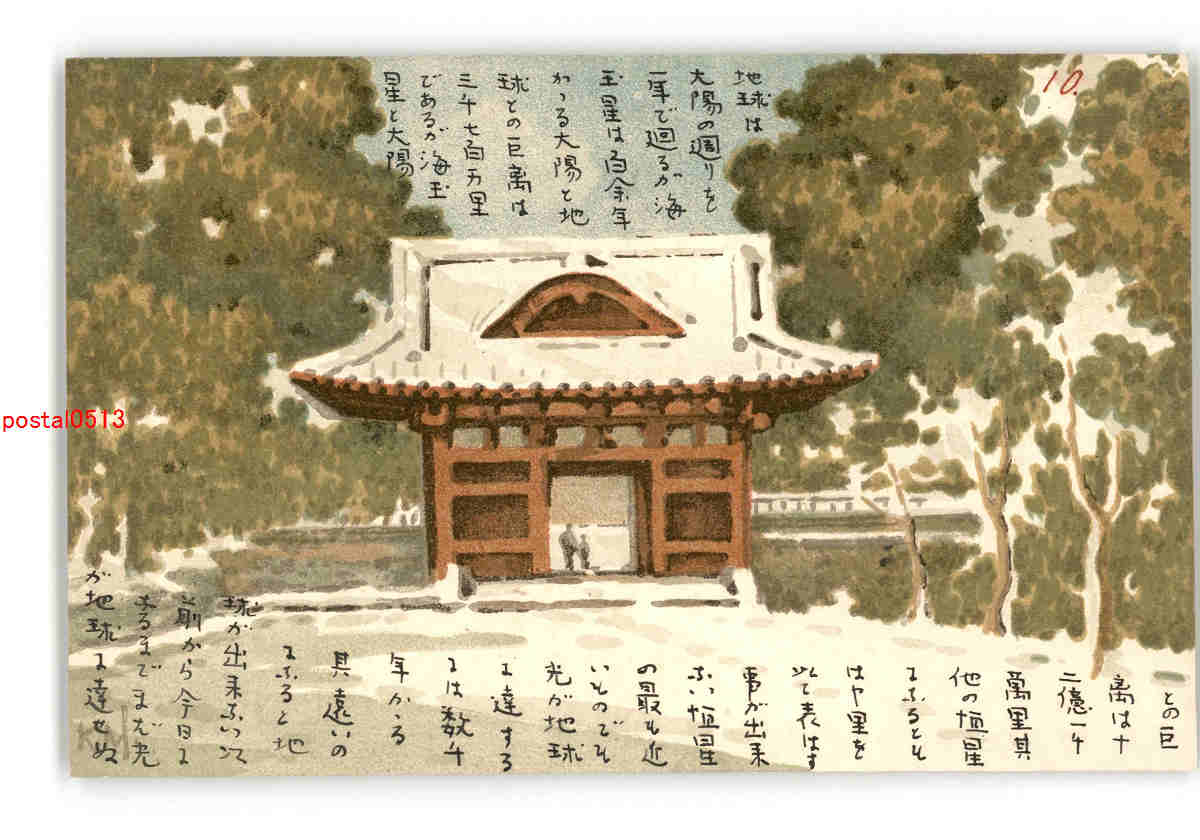 10.
地球は
大陽の週りを
一年で廻るが海
王星は百余年
かゝる大陽と地
球との巨離は
三千七百万里
であるが海王
星と大陽
との巨
離は十
二億一千
萬里其
他の恒星
になるとも
はや里を
以て表はす
事が出来
ない恒星
の最も近
いものでも
光が地球
に達する
には数千
年かゝる
其遠いの
になると地
球が出来ない以
前から今日に
至るまでまだ光
が地球に達せぬ
postal0513